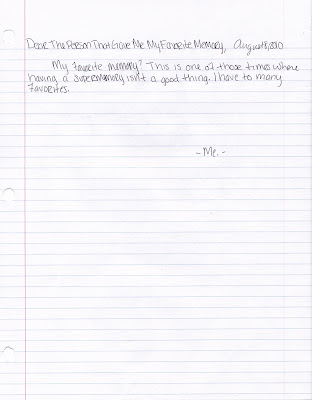 Dear The Person That Gave Me My Favorite Memory, August 8, 2010
My favorite memory? This is one of those times where
having a supermemory isn't a good thing. I have to many
favorites.
-Me.-